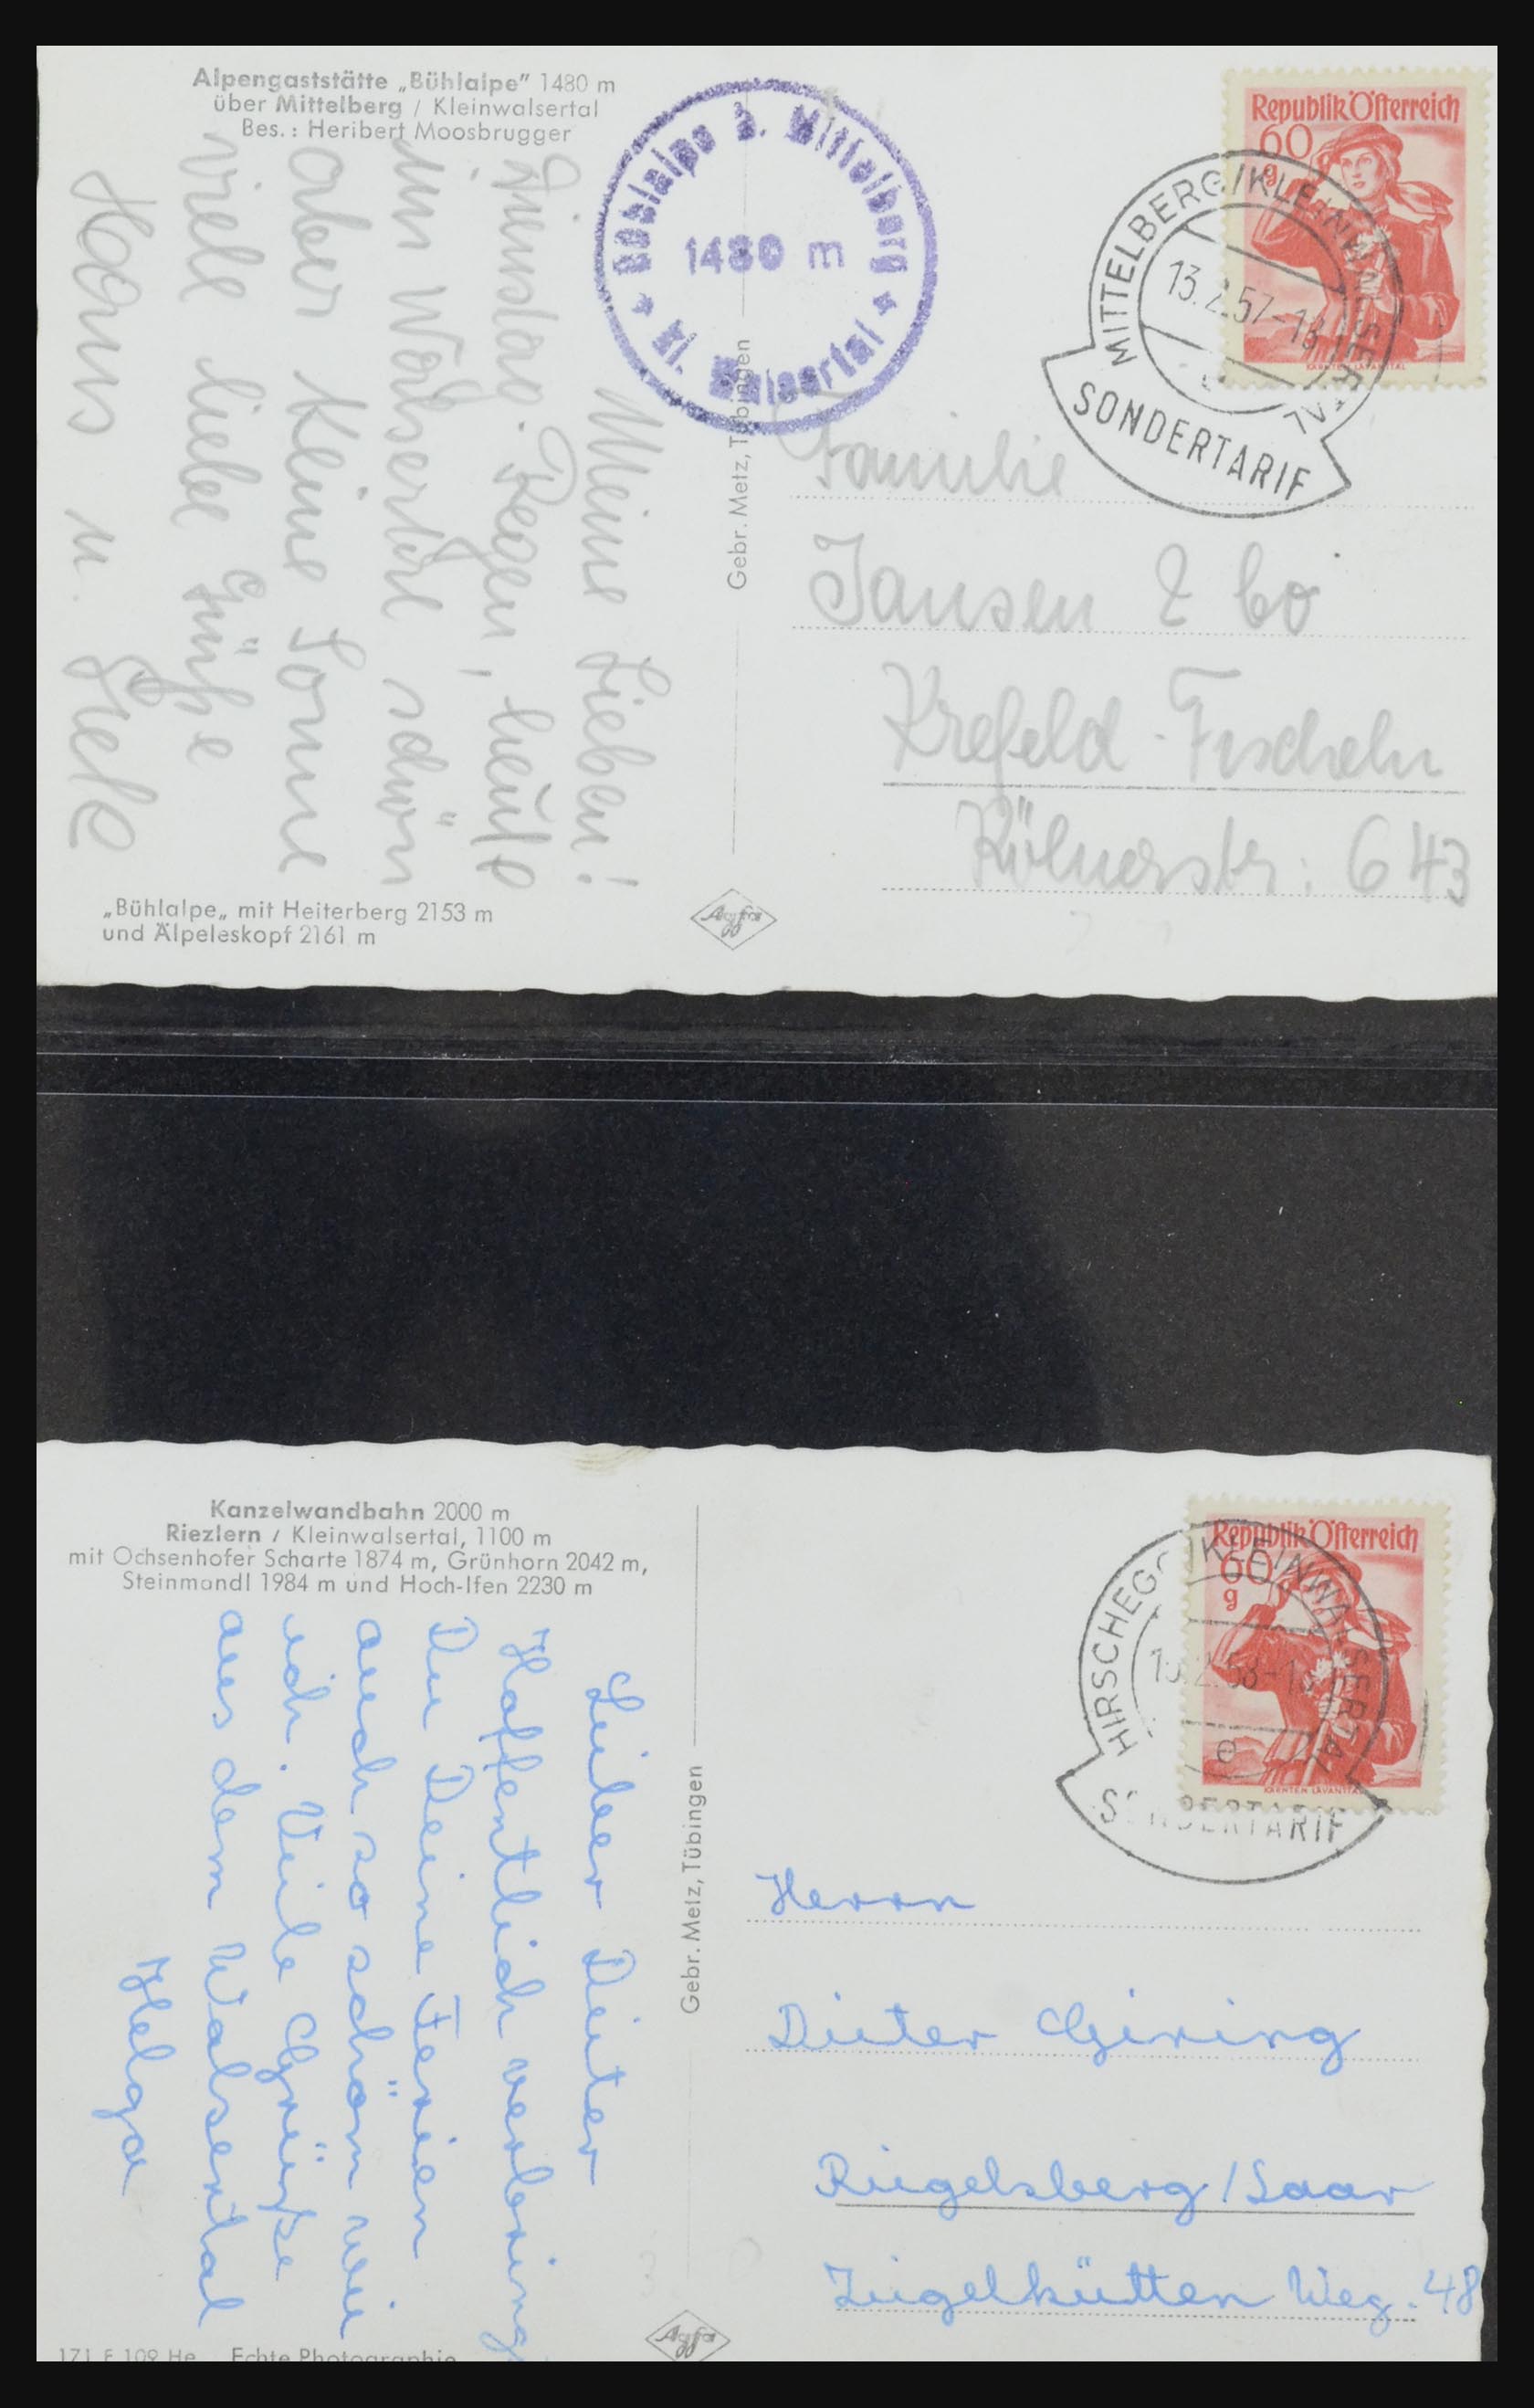 Alpengaststätte „Bühlalpe" 1480 m
über Mittelberg / Kleinwalsertal
Bes.: Heribert Moosbrugger
Bühlalpe b. Mittelberg
1480 m
Kl. Walsertal
Republik Österreich
60
g
KÄRNTEN LAVANTTAL
MITTELBERG/KLEINWALSERTAL
13.2.57-18
SONDERTARIF
Meine Lieben!
Dienstag. Regen, heute
im Walsertal schön
aber keine Sonne
viele liebe Grüße
Hanns u.
Gebr. Metz, Tübingen
Familie
Jansen & Co
Krefeld-Fischeln
Kölnerstr: 643
„Bühlalpe„ mit Heiterberg 2153 m
und Älpeleskopf 2161 m
Agfa
Kanzelwandbahn 2000 m
Riezlern / Kleinwalsertal, 1100 m
mit Ochsenhofer Scharte 1874 m, Grünhorn 2042 m,
Steinmandl 1984 m und Hoch-Ifen 2230 m
Republik Österreich
60
g
KÄRNTEN LAVANTTAL
HIRSCHEGG/KLEINWALSERTAL
.2.58-1
e
SONDERTARIF
Lieber Dieter
Hoffentlich verbring
Du Deine Ferien
auch so schön wie
ich. Viele Grüsse
aus dem Walsertal
Helga
Gebr. Metz, Tübingen
Herrn
Dieter Giring
Riegelsberg/Saar
Weg. 48
171 F 109 He Echte Photographie
Agfa